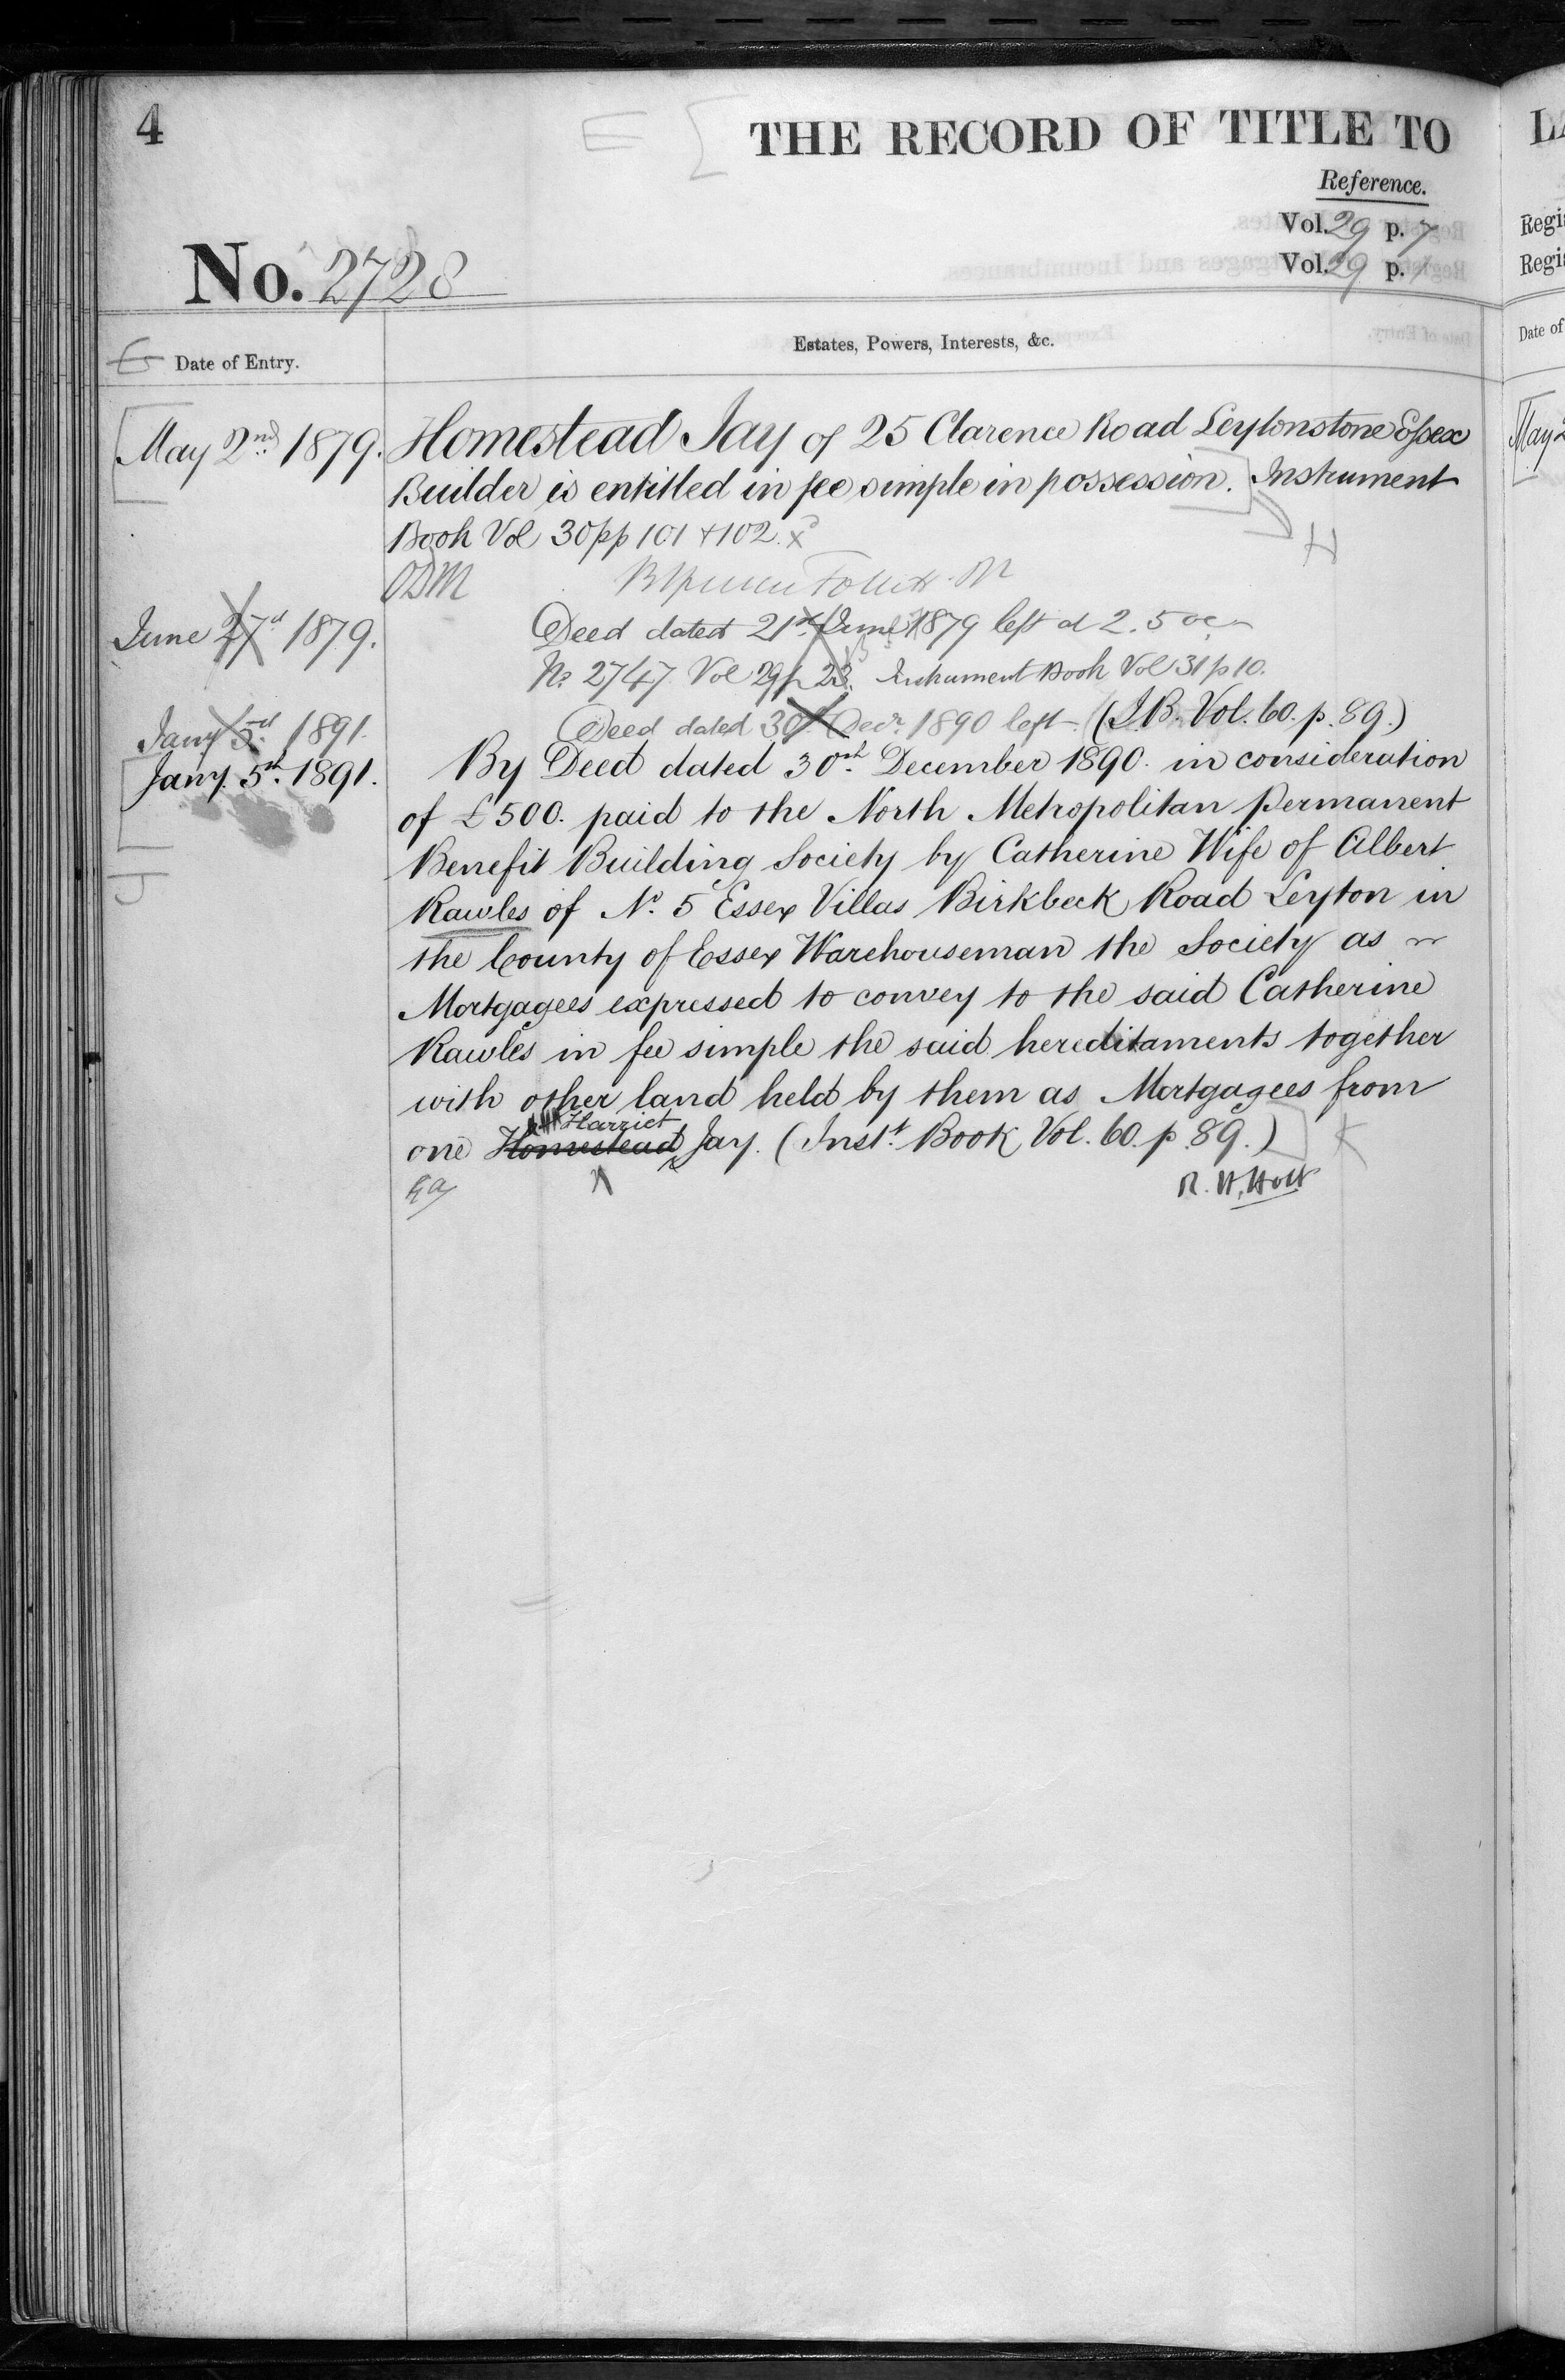 4
THE RECORD OF TITLE TO
Reference.
Vol. 29 p. 7
No. 2728
Vol. 29 p.
Date of Entry.
Estates, Powers, Interests, &c.
May 2nd 1879. Homestead Jay of 25 Clarence Road Leytonstone Essex
Builder is entitled in fee simple in possession. Instrument
Book Vol 30 pp 101 + 102. x
H
ODM
June 1879. Deed dated 21st June 1879 left at 2.5
No 2747 Vol 29 p 23. Instrument Book Vol 31 p 10.
Jany 5th 1891. Deed dated 30th Decr 1890 left (I.B. Vol. 60. p. 89.)
Jany. 5th 1891. By Deed dated 30th December 1890. in consideration
of £500. paid to the North Metropolitan Permanent
Benefit Building Society by Catherine Wife of Albert
Rawles of No. 5 Essex Villas Birkbeck Road Leyton in
the County of Essex Warehouseman the Society as
Mortgagees expressed to convey to the said Catherine
Rawles in fee simple the said hereditaments together
with other land held by them as Mortgagees from
Harriet
one Homestead Jay. (Inst. Book Vol. 60. p. 89.) K
R. H. Holt
LA
Regis
Regis
Date of
May 2